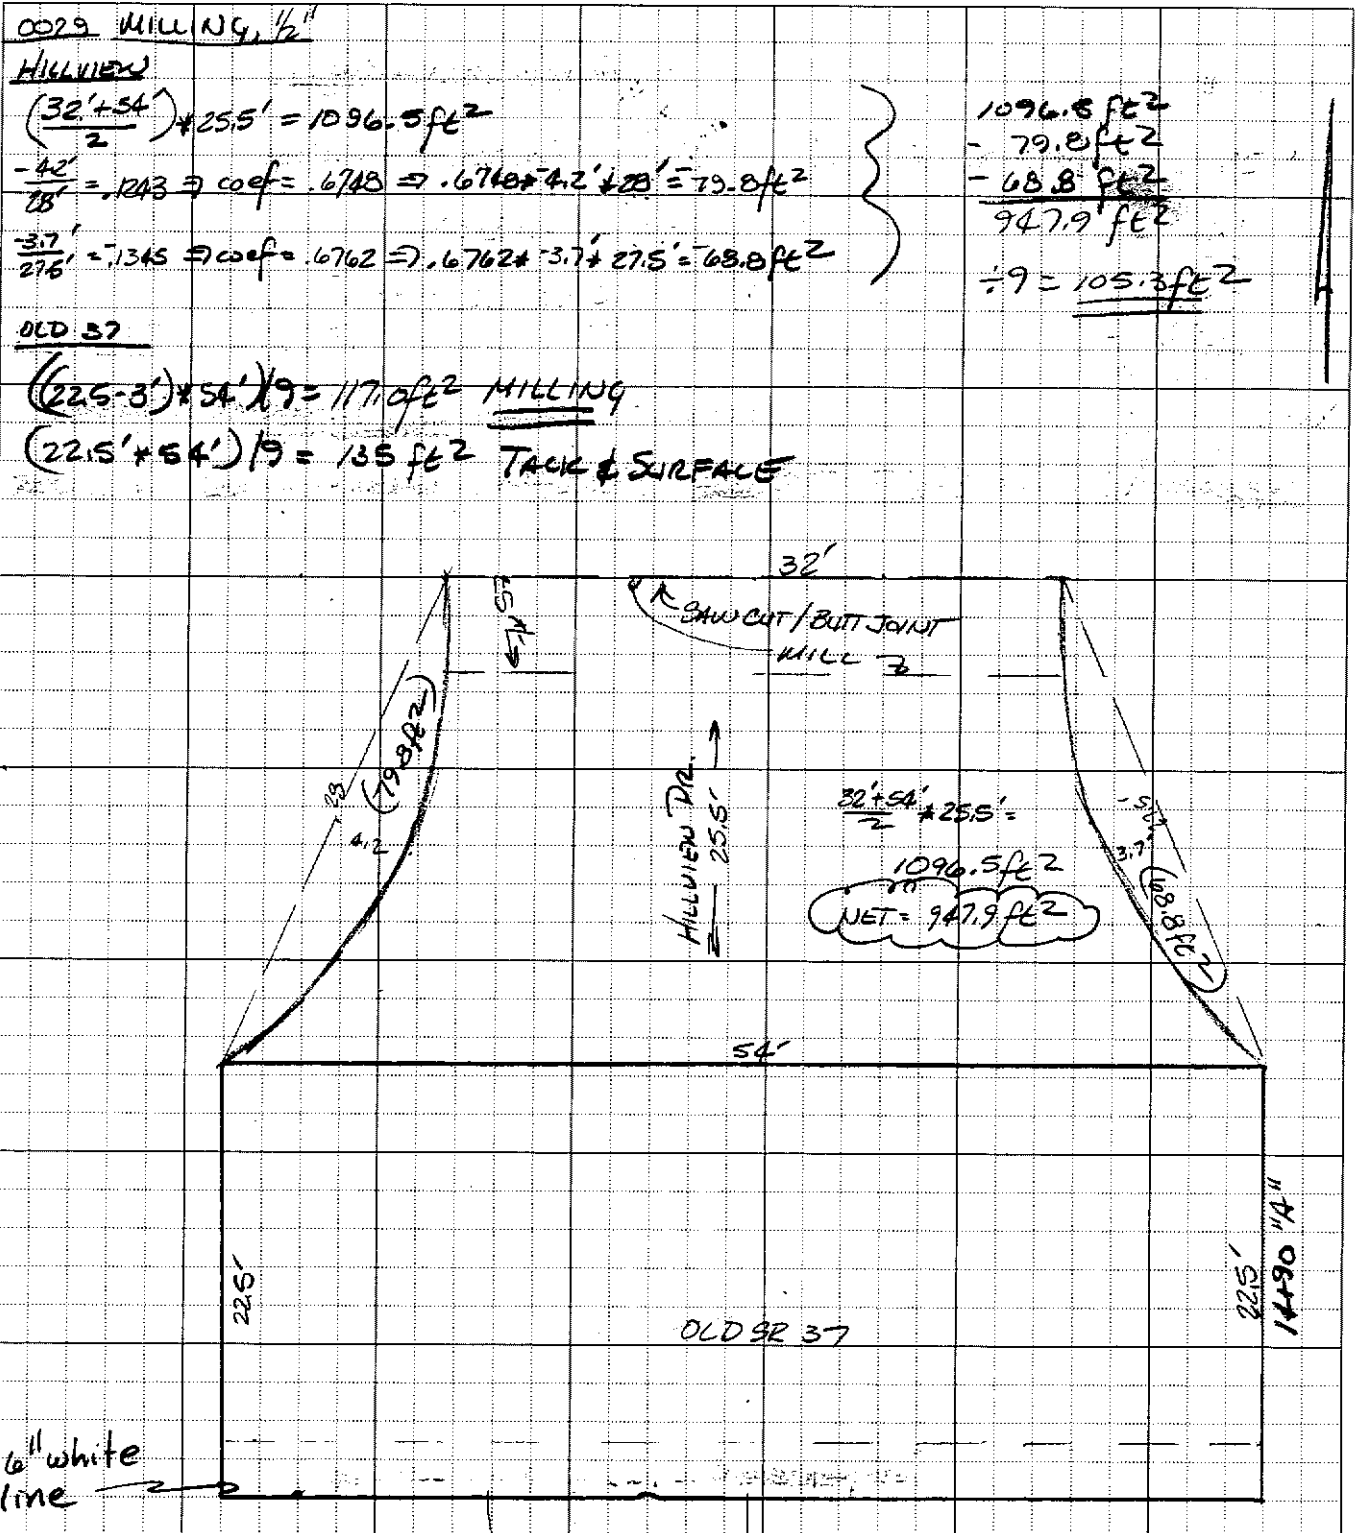 0029 MILLING, 1/2"
HILLVIEW
(32'+54'/2)*25.5' = 1096.5ft²
-4.2'/28' = .1243 ⇒ coef = .6748 ⇒ .6748*-4.2'*28' = -79.8ft²
-3.7'/27.5' = -.1345 ⇒ coef = .6762 ⇒ .6762*-3.7'*27.5' = -68.8ft²
1096.5 ft²
- 79.8 ft²
- 68.8 ft²
947.9 ft²
÷9 = 105.3ft²
OLD 37
((22.5-3')*54')/9 = 117.0ft² MILLING
(22.5'*54')/9 = 135 ft² TACK & SURFACE
32'
SAW CUT/BUTT JOINT
MILL
(79.8ft²)
4.2
HILLVIEW DR.
25.5'
32'+54'/2 *25.5' =
1096.5ft²
NET = 947.9 ft²
3.7'
(68.8ft²)
54'
22.5'
22.5'
14+90 "A"
OLD SR 37
6" white
line